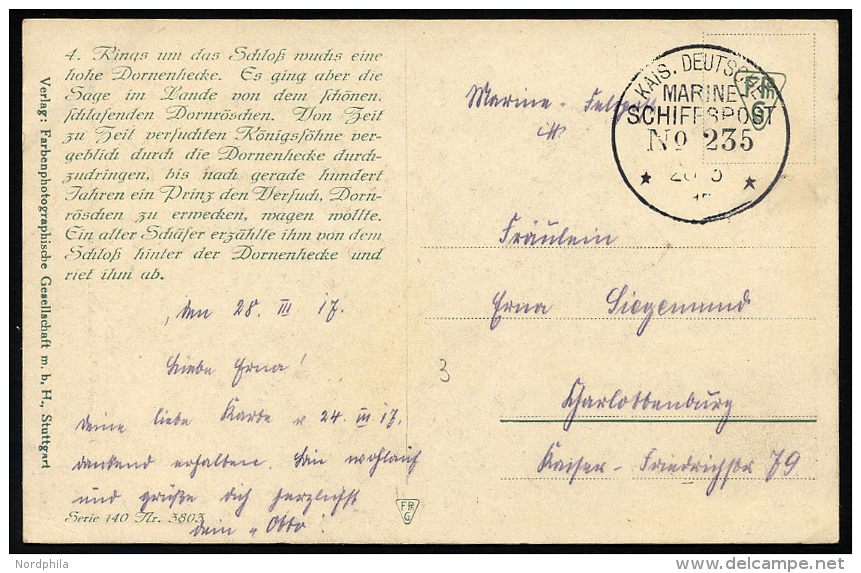 4. Rings um das Schloß wuchs eine
hohe Dornenhecke. Es ging aber die
Sage im Lande von dem schönen,
schlafenden Dornröschen. Von Zeit
zu Zeit versuchten Königssöhne ver-
geblich durch die Dornenhecke durch-
zudringen, bis nach gerade hundert
Jahren ein Prinz den Versuch, Dorn-
röschen zu erwecken, wagen wollte.
Ein alter Schäfer erzählte ihm von dem
Schloß hinter der Dornenhecke und
riet ihm ab.
Verlag: Farbenphotographische Gesellschaft m. b. H., Stuttgart
den 28. III 17.
Liebe Erna!
Deine liebe Karte v. 24. III 17.
dankend erhalten. Bin wohlauf
und grüße dich herzlichst
dein "Otto"
Serie 140 Nr. 3803
FPh
G
3
KAIS. DEUTSCHE
MARINE
SCHIFFSPOST
No 235
Marine-Feldpost
Fräulein
Erna Siegemund
Charlottenburg
Kaiser-Friedrichstr 79
Nordphila
delcampe.net